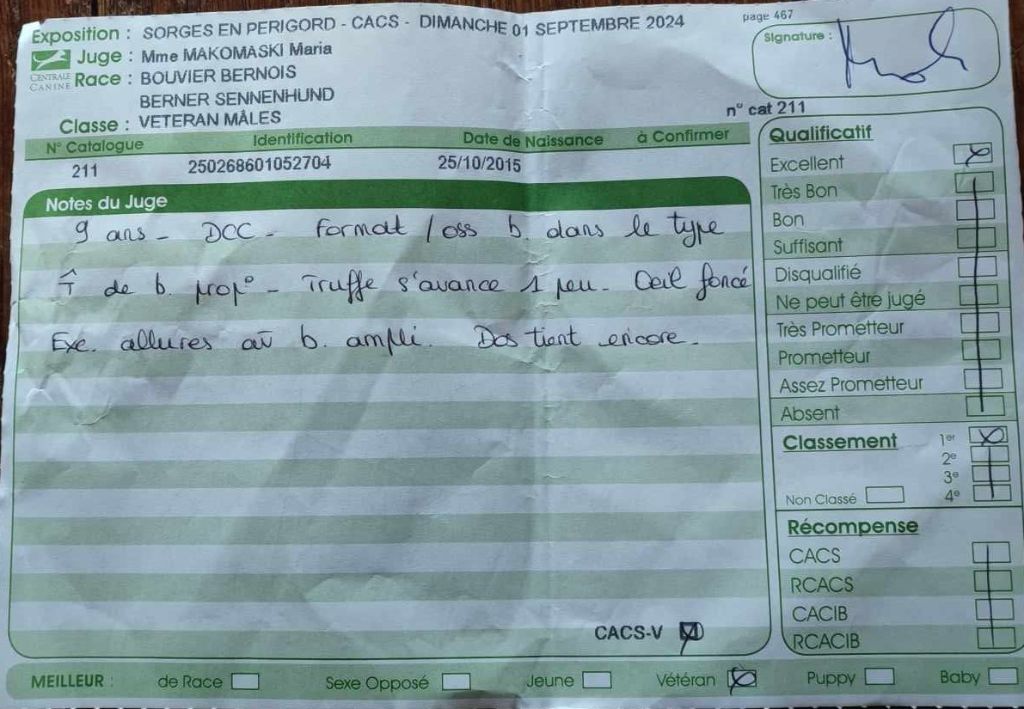 Exposition : SORGES EN PERIGORD - CACS - DIMANCHE 01 SEPTEMBRE 2024
page 467
Signature :
CENTRALE CANINE
Juge : Mme MAKOMASKI Maria
Race : BOUVIER BERNOIS
BERNER SENNENHUND
Classe : VETERAN MÂLES
n° cat 211
N° Catalogue Identification Date de Naissance à Confirmer
211 250268601052704 25/10/2015
Notes du Juge
9 ans - DCC - Format / oss b. dans le type
T̂ de b. prop° - Truffe s'avance 1 peu - Oeil foncé
Exc. allures av b. ampli. Dos tient encore.
CACS-V
Qualificatif
Excellent
Très Bon
Bon
Suffisant
Disqualifié
Ne peut être jugé
Très Prometteur
Prometteur
Assez Prometteur
Absent
Classement 1er
2e
3e
Non Classé 4e
Récompense
CACS
RCACS
CACIB
RCACIB
MEILLEUR : de Race Sexe Opposé Jeune Vétéran Puppy Baby